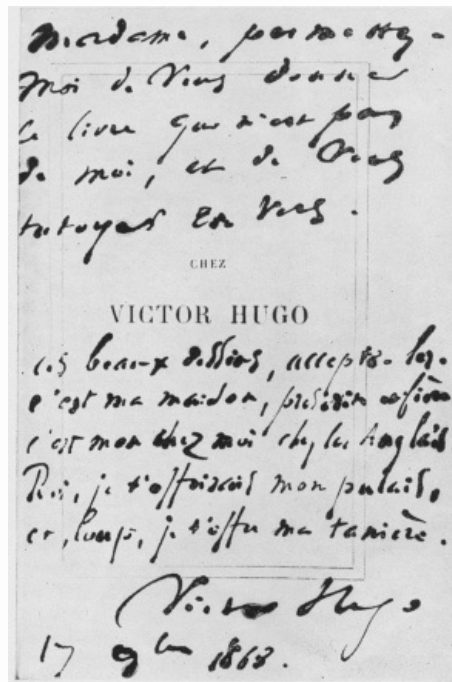 Madame, permettez-
moi de vous donner
ce livre qui n'est pas
de moi, et de vous
tutoyer en vers.
CHEZ
VICTOR HUGO
ces beaux dessins, accepte-les.
c'est ma maison,
c'est mon chez moi chez les Anglais
Roi, je t'offrirais mon palais,
et, loup, je t'offre ma tanière.
Victor Hugo
17 9bre